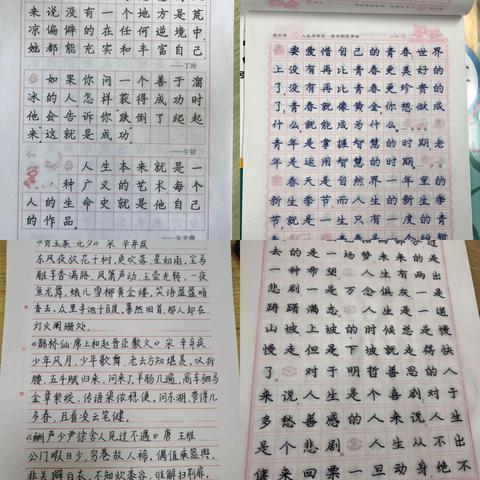 来说没有一个地方是荒
凉偏僻的在任何逆境中
她都能充实和丰富自己
——丁玲
如果你问一个善于溜
冰的人怎样获得成功时
他会告诉你跌倒了爬起
来这就是成功
——牛顿
人生本来就是一
种广义的艺术每个
人的生命史就是他自己
的作品
要爱惜自己的青春世界
上没有再比青春更美好的
了没有再比青春更珍贵的
了青春就像黄金你想做成
什么就能成为什么
青年是掌握智慧的时期老
年是运用智慧的时期
春天是自然界一年里的
新生季节而人生的新生季
节就是一生只有一度的青春
《青玉案·元夕》宋 辛弃疾
东风夜放花千树，更吹落，星如雨，宝马
雕车香满路，凤箫声动，玉壶光转，一夜
鱼龙舞，蛾儿雪柳黄金缕，笑语盈盈暗
香去，众里寻他千百度，蓦然回首，那人却在
灯火阑珊处。
《鹊桥仙·席上和赵晋臣敷文》宋 辛弃疾
少年风月，少年歌舞，老去方知堪羡，叹折
腰，五斗赋归来，问走了，羊肠几遍，高车驷马
金章紫绶，传语渠侬稳便，问东湖，带得几
多春，且看凌云笔健。
《酬严少尹徐舍人见过不遇》唐 王维
公门暇日少，穷巷故人稀，偶值乘篮舆，
非关避白衣，不知炊黍谷，谁解扫荆扉，
去的是一场梦未来的是
一种希望万念人生有两出
悲剧一是万念俱灰一是
踌躇满志人生是一道
山坡上坡的时候总是慢
慢走但是下坡就走得快
了对于明哲善思的人
来说人生是个喜剧对于
多愁善感的人来说人生
是个悲剧人生从不出
售来回票一旦动身绝不